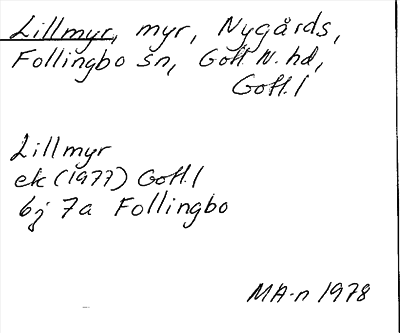 Lillmyr, myr, Nygårds,
Follingbo sn, Gotl. N. hd,
Gotl. l
Lillmyr
ek (1977) Gotl. l
6j 7a Follingbo
MA-n 1978